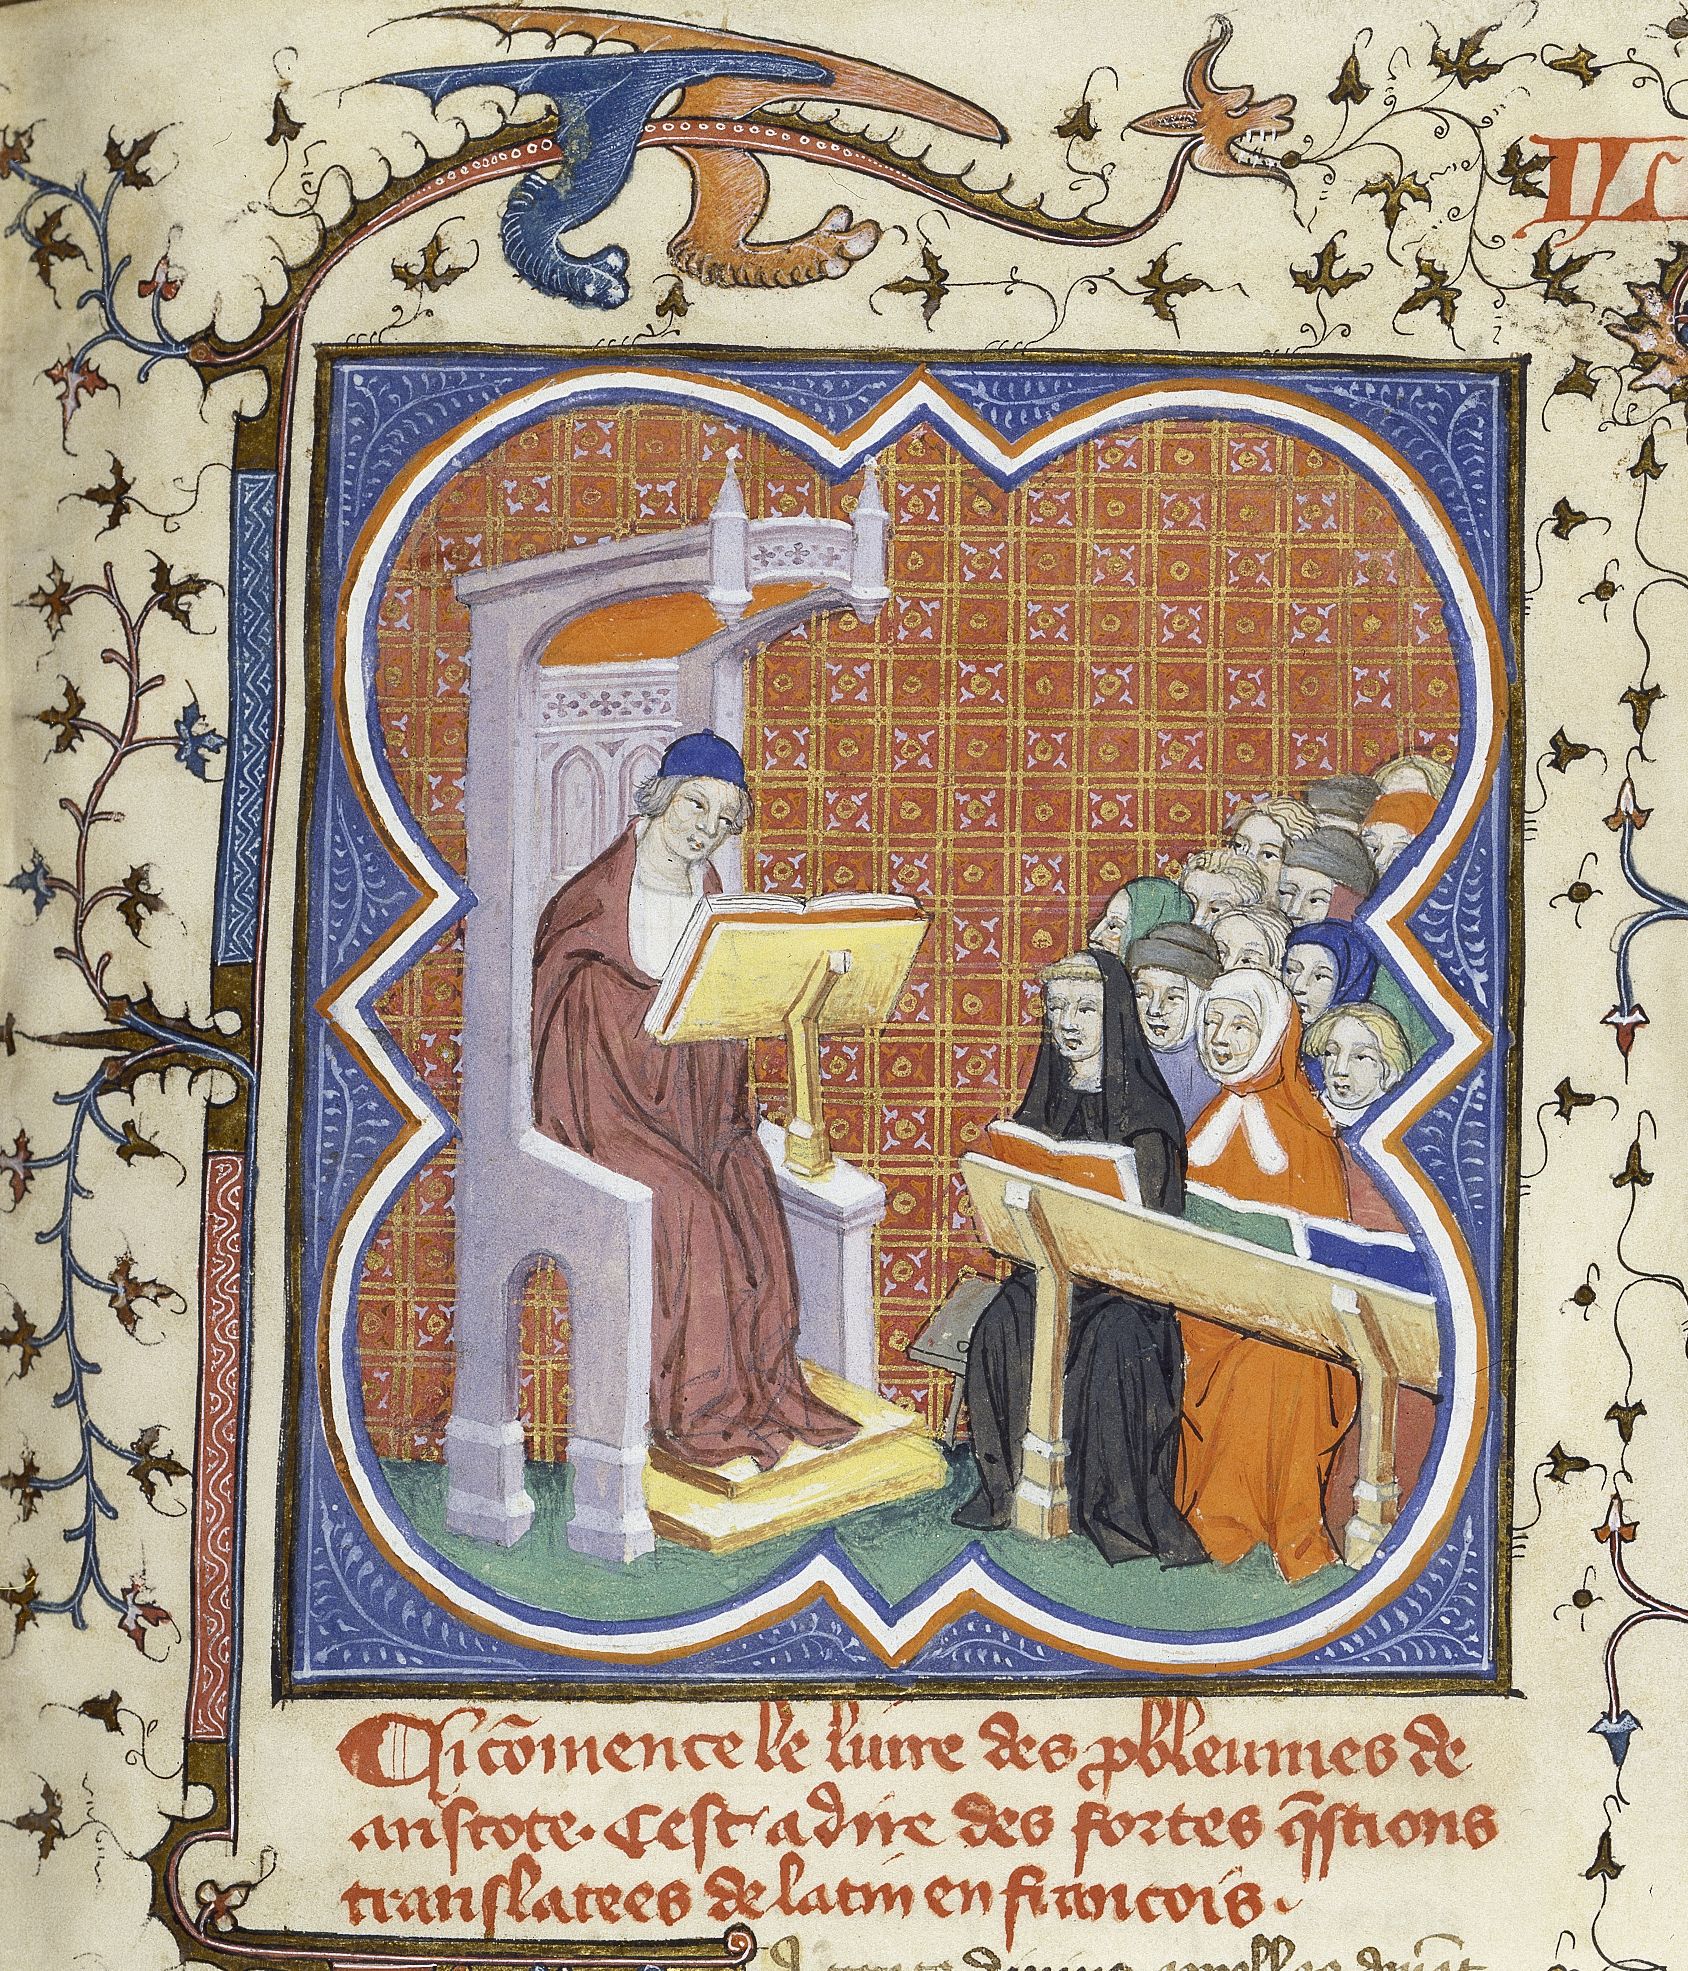 Ci cõmence le liure des p̱bleumes de
aristote. Cest a dire des fortes q̃stions
translatees de latin en francois.